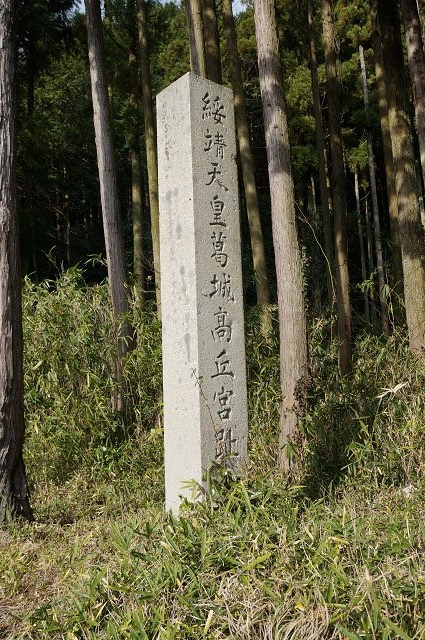 綏靖天皇葛城高丘宮趾